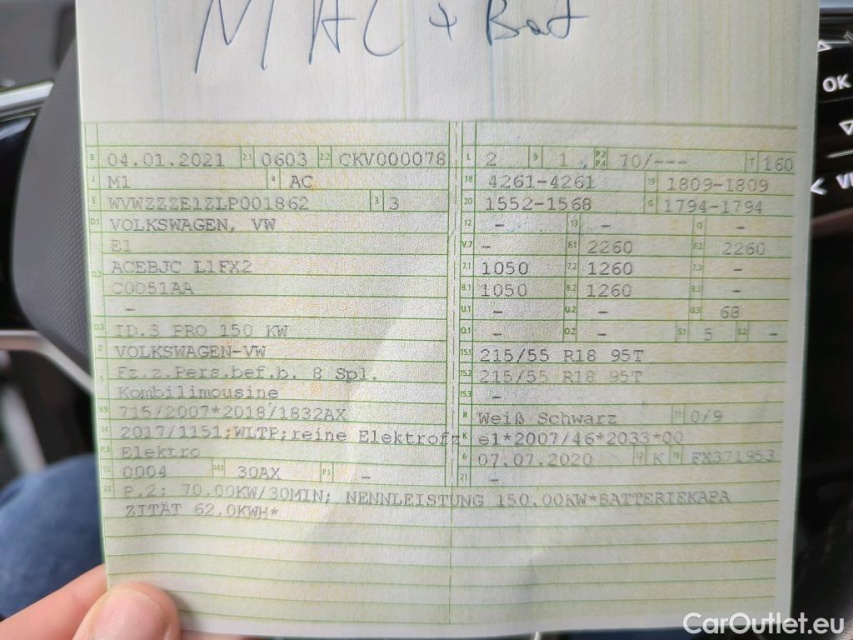 MAC + Bat
OK
VI
B 04.01.2021 2.1 0603 2.2 CKV000078 L 2 9 1 P.2 P.4 70/--- T 160
J M1 4 AC 18 4261-4261 19 1809-1809
E WVWZZZE1ZLP001862 3 3 20 1552-1568 G 1794-1794
D.1 VOLKSWAGEN, VW 12 - 13 - Q -
E1 V.7 - F.1 2260 F.2 2260
D.2 ACEBJC L1FX2 7.1 1050 7.2 1260 7.3 -
C0051AA 8.1 1050 8.2 1260 8.3 -
- U.1 - U.2 - U.3 68
D.3 ID.3 PRO 150 KW O.1 - O.2 - S.1 5 S.2 -
2 VOLKSWAGEN-VW 15.1 215/55 R18 95T
5 Fz.z.Pers.bef.b. 8 Spl. 15.2 215/55 R18 95T
Kombilimousine 15.3 -
V.9 715/2007*2018/1832AX R Weiß Schwarz 11 0/9
14 2017/1151;WLTP;reine Elektrofz K e1*2007/46*2033*00
P.3 Elektro 6 07.07.2020 17 K 16 FX371953
10 0004 14.1 30AX P.1 - 21 -
22 P.2: 70.00KW/30MIN; NENNLEISTUNG 150.00KW*BATTERIEKAPA
ZITÄT 62.0KWH*
CarOutlet.eu